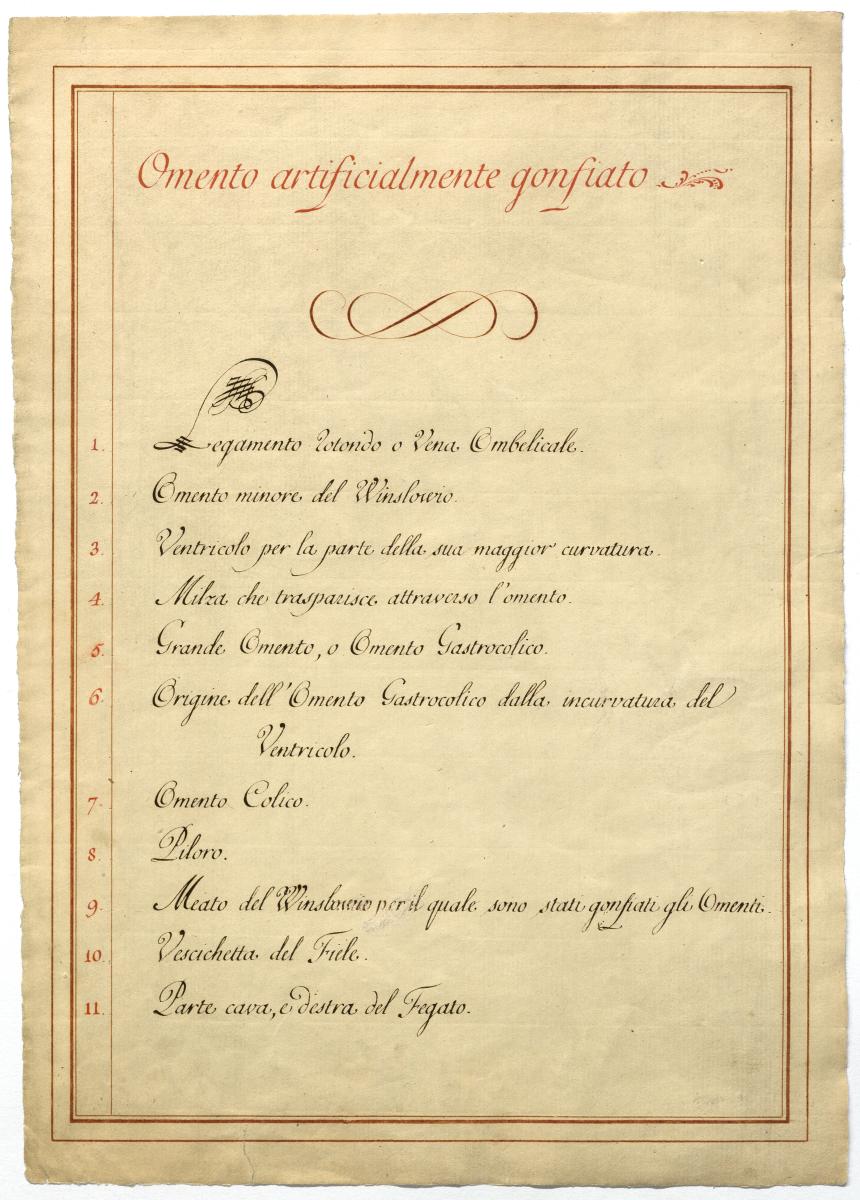 Omento artificialmente gonfiato
1. Legamento rotondo o Vena Ombelicale.
2. Omento minore del Winslowio.
3. Ventricolo per la parte della sua maggior curvatura.
4. Milza che trasparisce attraverso l'omento.
5. Grande Omento, o Omento Gastrocolico.
6. Origine dell'Omento Gastrocolico dalla incurvatura del
Ventricolo.
7. Omento Colico.
8. Piloro.
9. Meato del Winslowio per il quale sono stati gonfiati gli Omenti.
10. Vescichetta del Fiele.
11. Parte cava, e destra del Fegato.